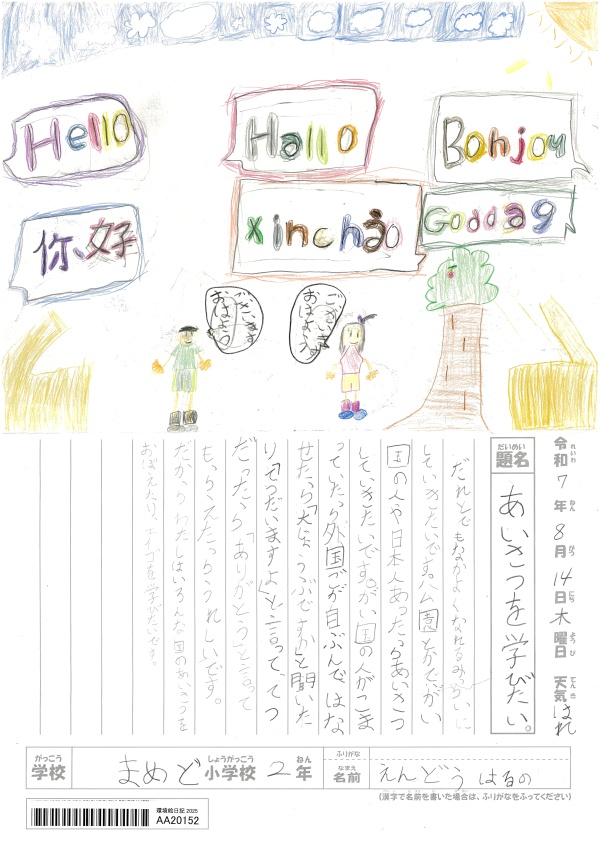 Hello
Hallo
Bonjou
你好
xinchào
Goddag
おはよう
ございます
おはよう
ございます
令和7年8月14日木曜日 天気 はれ
れいわ ねん がつ にち ようび てんき
だいめい
題名
あいさつを学びたい。
だれとでもなかよくなれるみらいに
していきたいです。公園とかでがい
国の人や日本人あったらあいさつ
していきたいです。がい国の人がこま
っていたら外国ごが自ぶんではな
せたら「大じょうぶですか」と聞いた
り「てつだいますよ」と言って、てつ
だったら「ありがとう」と言って
もらえたらうれしいです。
だからわたしはいろんな国のあいさつを
おぼえたり、エイゴを学びたいです。
がっこう
学校
まめど
しょうがっこう ねん
小学校 2年
ふりがな
なまえ
名前
えんどう はるの
(漢字で名前を書いた場合は、ふりがなをふってください)
環境絵日記 2025
AA20152